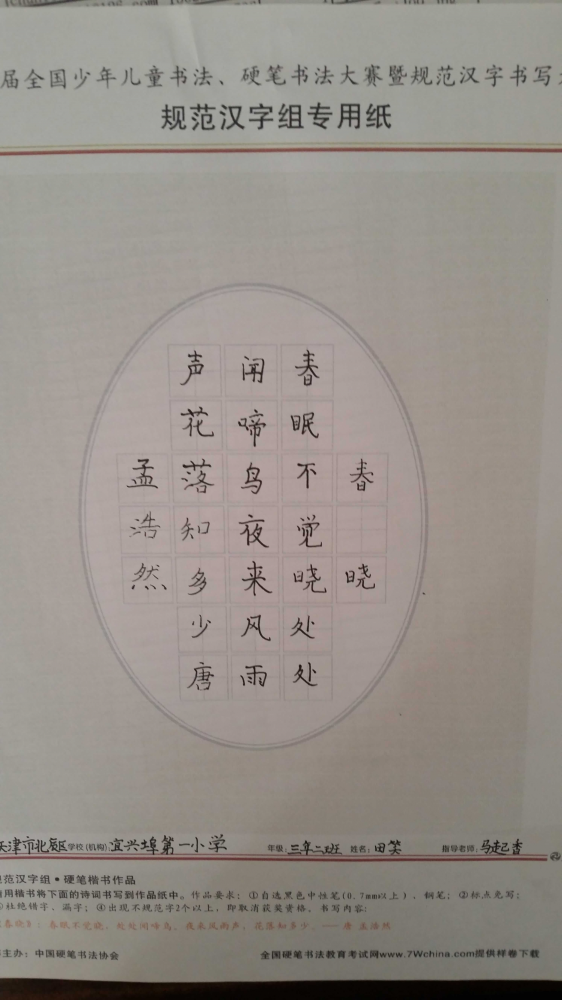 届全国少年儿童书法、硬笔书法大赛暨规范汉字书写
规范汉字组专用纸
春晓
春眠不觉晓处处
闻啼鸟夜来风雨
声花落知多少唐
孟浩然
天津市北辰区学校(机构):宜兴埠第一小学 年级:三年二班 姓名:田笑 指导老师:马起香
规范汉字组·硬笔楷书作品
用楷书将下面的诗词书写到作品纸中。作品要求:①自选黑色中性笔(0.7mm以上)、钢笔;②标点免写;
③杜绝错字、漏字;④出现不规范字2个以上,即取消获奖资格。书写内容:
春晓》:春眠不觉晓,处处闻啼鸟。夜来风雨声,花落知多少。——唐 孟浩然
主办:中国硬笔书法协会 全国硬笔书法教育考试网www.7Wchina.com提供样卷下载